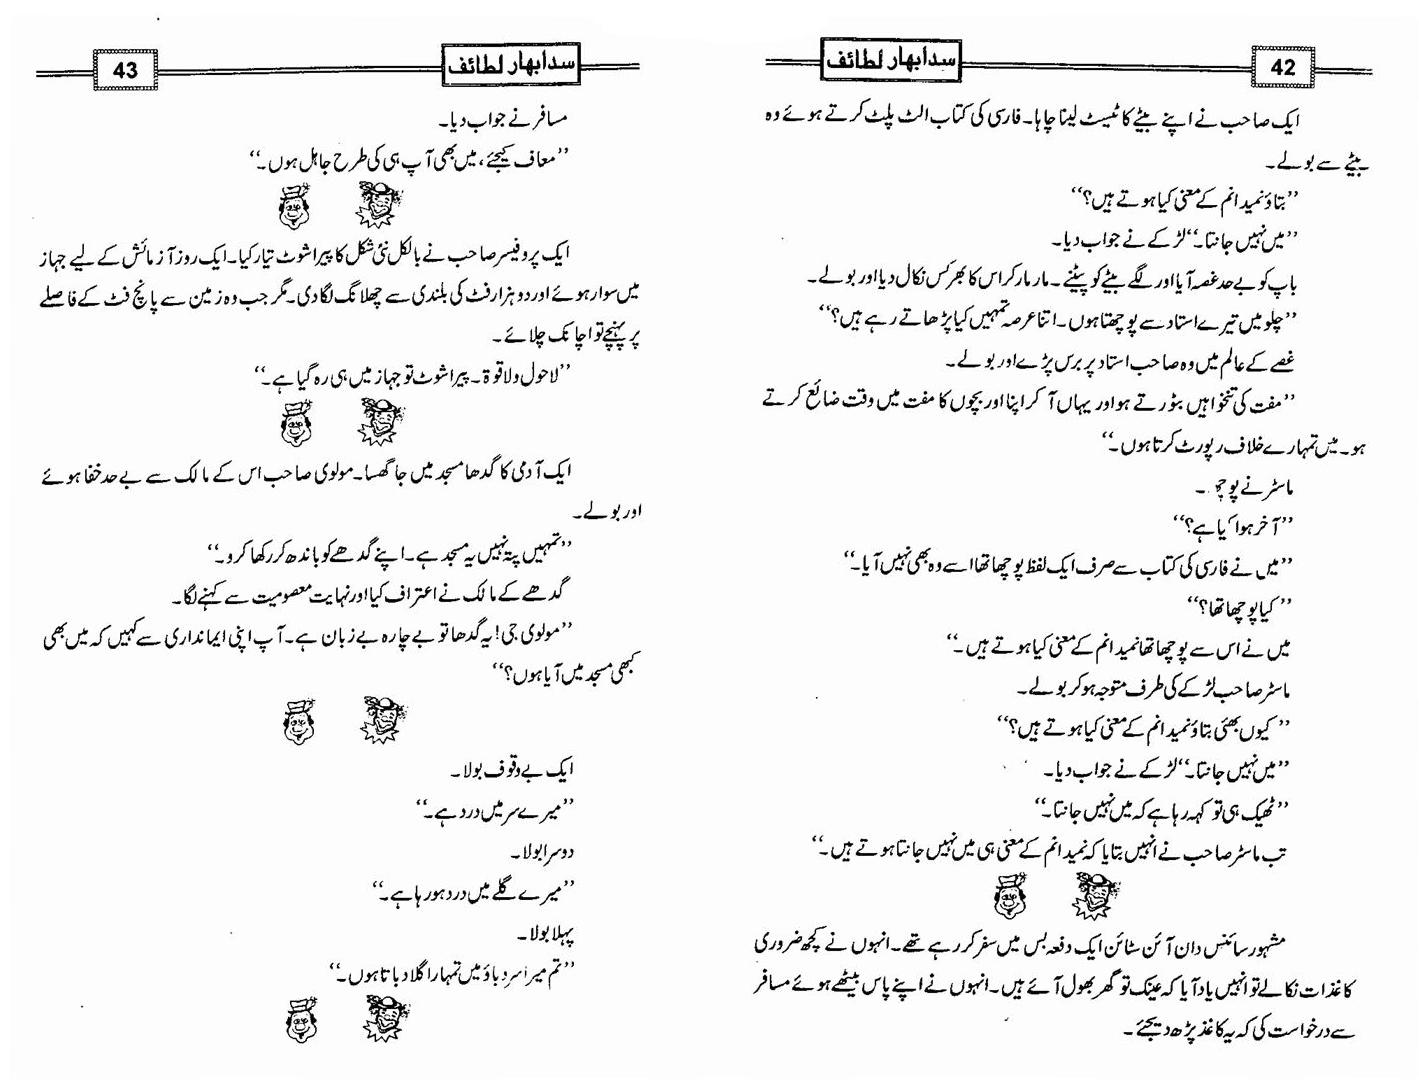 42
سدابہار لطائف
ایک صاحب نے اپنے بیٹے کا ٹیسٹ لینا چاہا۔ فارسی کی کتاب الٹ پلٹ کرتے ہوئے وہ
بیٹے سے بولے۔
’’بتاؤ نمیدانم کے معنی کیا ہوتے ہیں؟‘‘
’’میں نہیں جانتا۔‘‘ لڑکے نے جواب دیا۔
باپ کو بے حد غصہ آیا اور لگے بیٹے کو پیٹنے۔ مار مار کر اس کا بھرکس نکال دیا اور بولے۔
’’چلو میں تیرے استاد سے پوچھتا ہوں۔ اتنا عرصہ تمہیں کیا پڑھاتے رہے ہیں؟‘‘
غصے کے عالم میں وہ صاحب استاد پر برس پڑے اور بولے۔
’’مفت کی تنخواہیں بٹورتے ہو اور یہاں آ کر اپنا اور بچوں کا مفت میں وقت ضائع کرتے
ہو۔ میں تمہارے خلاف رپورٹ کرتا ہوں۔‘‘
ماسٹر نے پوچھ۔
’’آخر ہوا کیا ہے؟‘‘
’’میں نے فارسی کی کتاب سے صرف ایک لفظ پوچھا تھا اسے وہ بھی نہیں آیا۔‘‘
’’کیا پوچھا تھا؟‘‘
میں نے اس سے پوچھا تھا نمیدانم کے معنی کیا ہوتے ہیں۔‘‘
ماسٹر صاحب لڑکے کی طرف متوجہ ہو کر بولے۔
’’کیوں بھئی بتاؤ نمیدانم کے معنی کیا ہوتے ہیں؟‘‘
’’میں نہیں جانتا۔‘‘ لڑکے نے جواب دیا۔
’’ٹھیک ہی تو کہہ رہا ہے کہ میں نہیں جانتا۔‘‘
تب ماسٹر صاحب نے انہیں بتایا کہ نمیدانم کے معنی ہی میں نہیں جانتا ہوتے ہیں۔‘‘
مشہور سائنس دان آئن سٹائن ایک دفعہ بس میں سفر کر رہے تھے۔ انہوں نے کچھ ضروری
کاغذات نکالے تو انہیں یاد آیا کہ عینک تو گھر بھول آئے ہیں۔ انہوں نے اپنے پاس بیٹھے ہوئے مسافر
سے درخواست کی کہ یہ کاغذ پڑھ دیجئے۔
سدابہار لطائف
43
مسافر نے جواب دیا۔
’’معاف کیجئے، میں بھی آپ ہی کی طرح جاہل ہوں۔‘‘
ایک پروفیسر صاحب نے بالکل نئی شکل کا پیراشوٹ تیار کیا۔ ایک روز آزمائش کے لیے جہاز
میں سوار ہوئے اور دو ہزار فٹ کی بلندی سے چھلانگ لگا دی۔ مگر جب وہ زمین سے پانچ فٹ کے فاصلے
پر پہنچے تو اچانک چلائے۔
’’لاحول ولا قوۃ۔ پیراشوٹ تو جہاز میں ہی رہ گیا ہے۔‘‘
ایک آدمی کا گدھا مسجد میں جا گھسا۔ مولوی صاحب اس کے مالک سے بے حد خفا ہوئے
اور بولے۔
’’تمہیں پتہ نہیں یہ مسجد ہے۔ اپنے گدھے کو باندھ کر رکھا کرو۔‘‘
گدھے کے مالک نے اعتراف کیا اور نہایت معصومیت سے کہنے لگا۔
’’مولوی جی! یہ گدھا تو بے چارہ بے زبان ہے۔ آپ اپنی ایمانداری سے کہیں کہ میں بھی
کبھی مسجد میں آیا ہوں؟‘‘
ایک بے وقوف بولا۔
’’میرے سر میں درد ہے۔‘‘
دوسرا بولا۔
’’میرے گلے میں درد ہو رہا ہے۔‘‘
پہلا بولا۔
’’تم میرا سر دباؤ میں تمہارا گلا دباتا ہوں۔‘‘